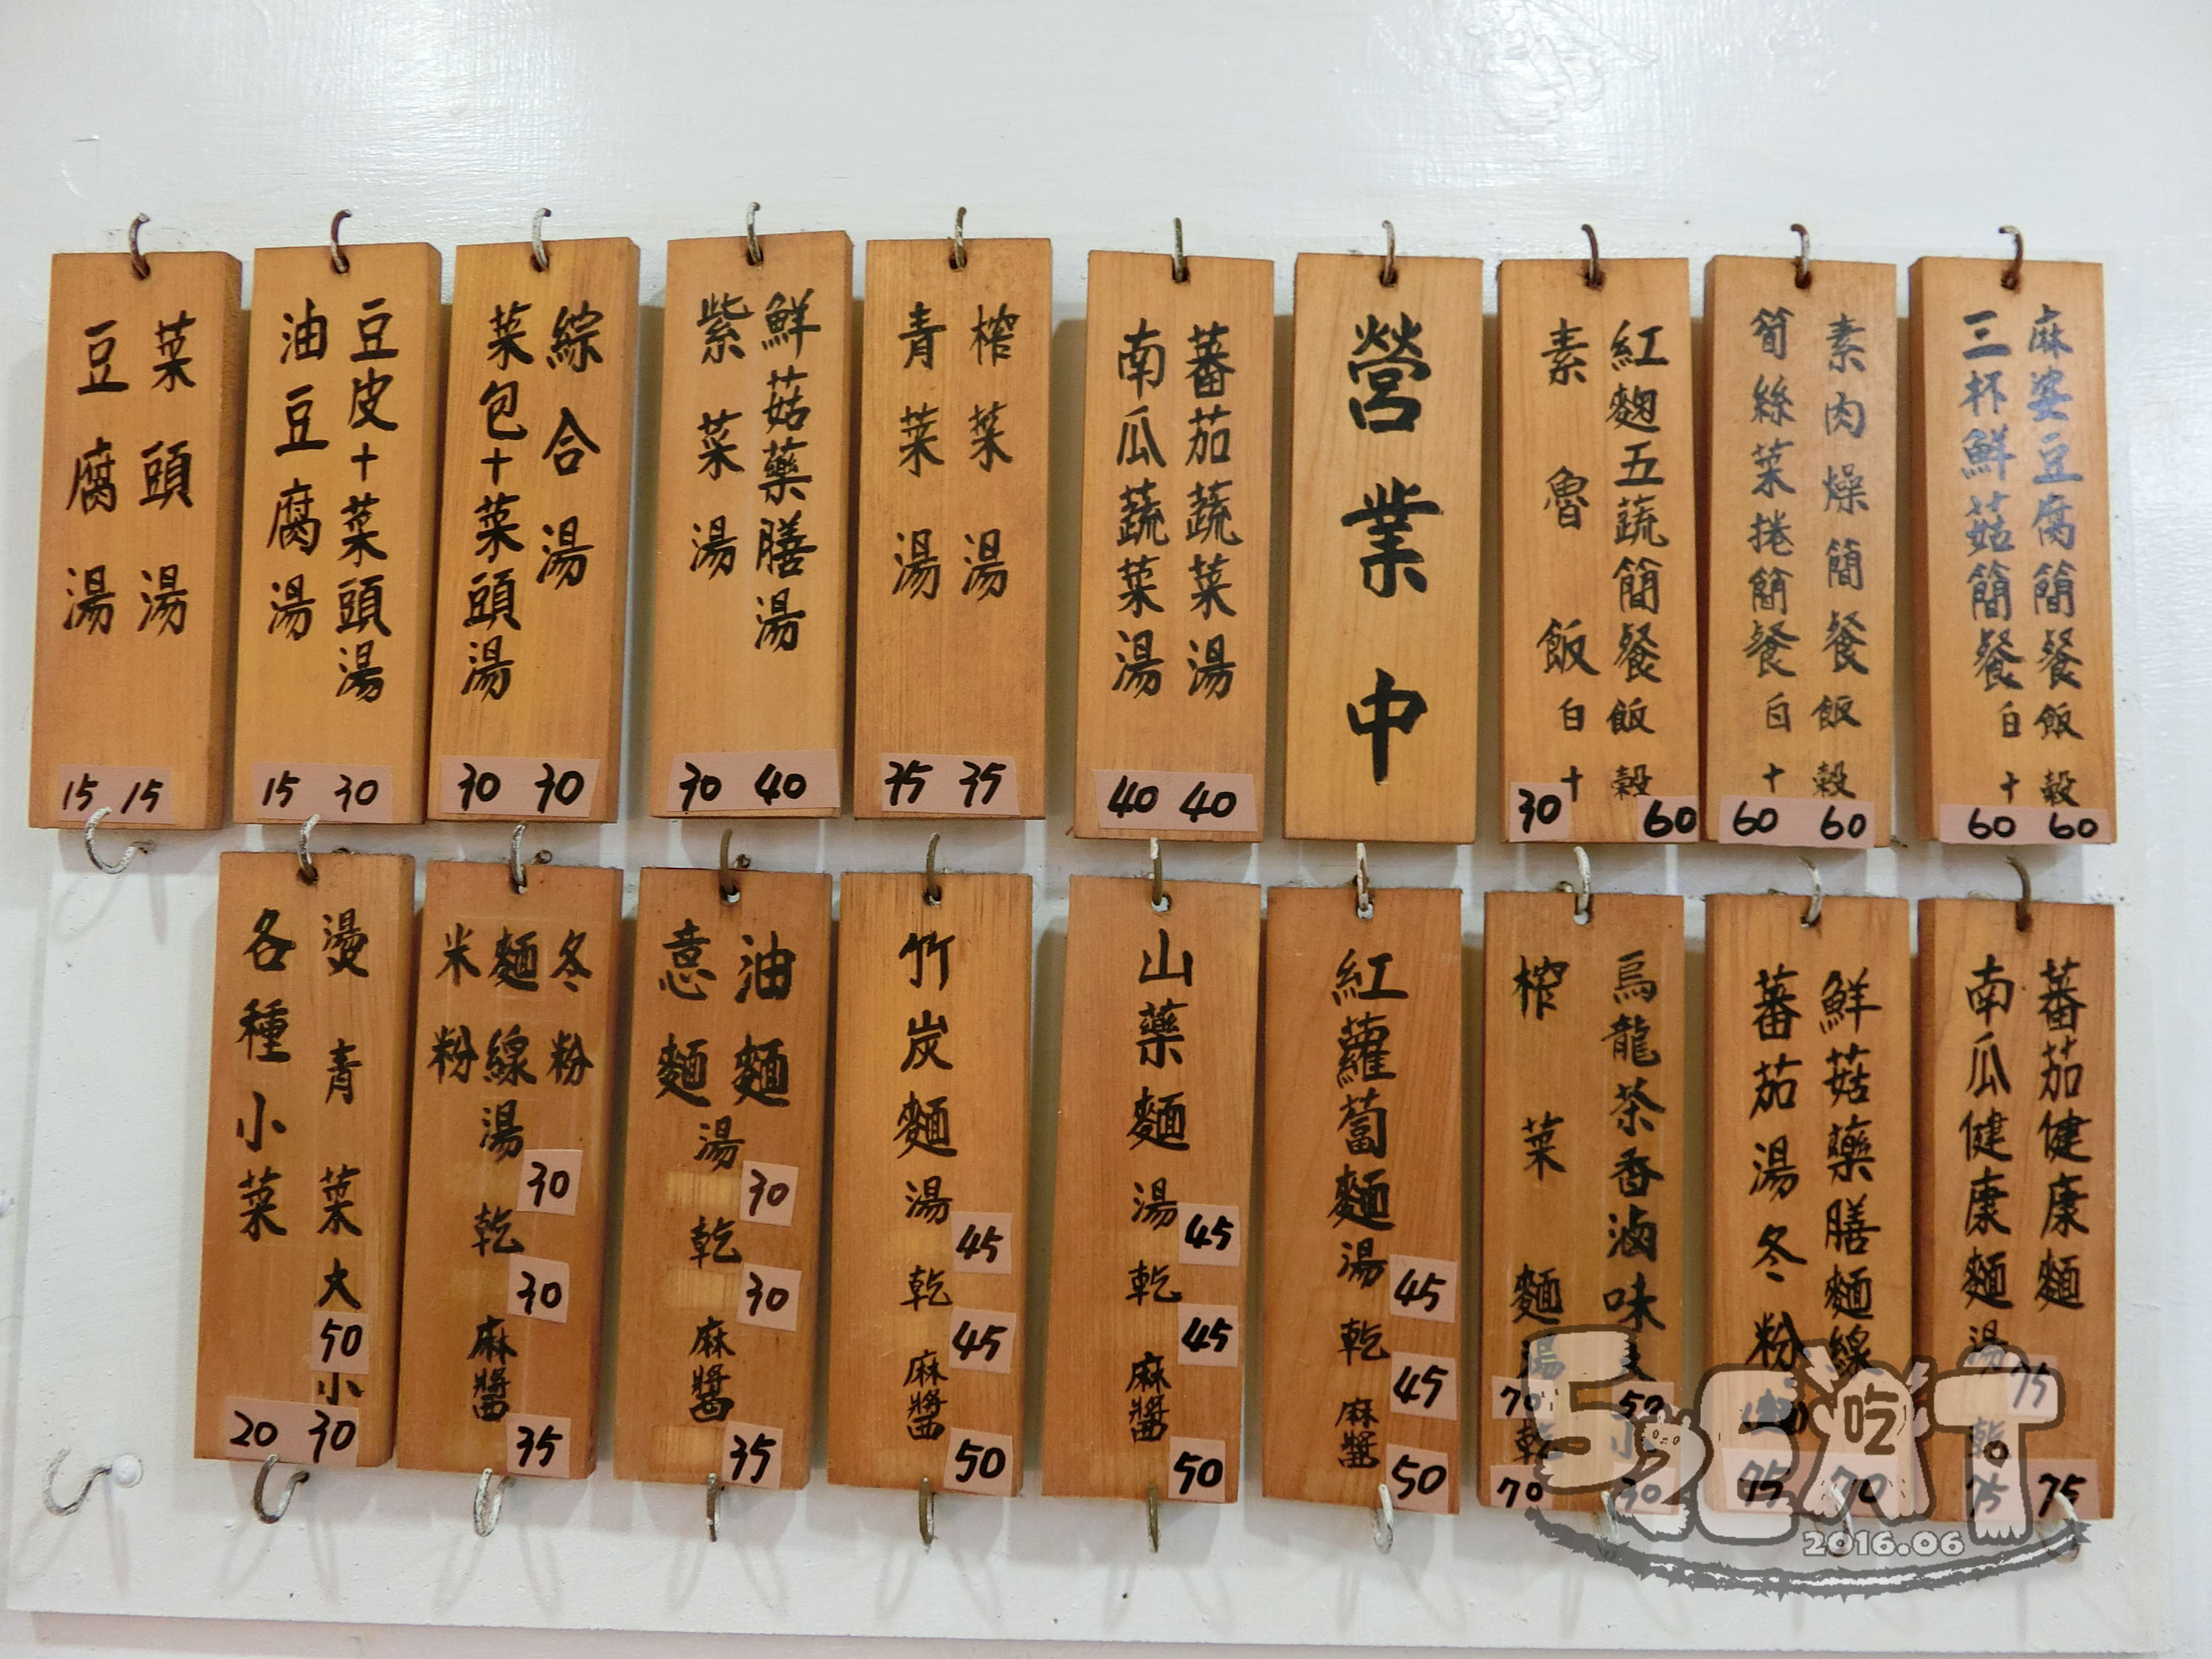 麻婆豆腐簡餐飯穀 60
三杯鮮菇簡餐白十 60
素肉燥簡餐飯穀 60
筍絲菜捲簡餐白十 60
紅麴五蔬簡餐飯穀 60
素魯飯白十 30
營業中
蕃茄蔬菜湯 40
南瓜蔬菜湯 40
榨菜湯 35
青菜湯 35
鮮菇藥膳湯 40
紫菜湯 30
綜合湯 30
菜包+菜頭湯 30
豆皮+菜頭湯 30
油豆腐湯 15
菜頭湯 15
豆腐湯 15
蕃茄健康麵 75
南瓜健康麵 湯 75 乾 75
鮮菇藥膳麵線 70
蕃茄湯冬粉 75
烏龍茶香滷味 大 50 小 30
榨菜麵 湯 70 乾 70
紅蘿蔔麵 湯 45 乾 45 麻醬 50
山藥麵 湯 45 乾 45 麻醬 50
竹炭麵 湯 45 乾 45 麻醬 50
油麵
意麵
湯 30 乾 30 麻醬 35
冬粉
麵線
米粉
湯 30 乾 30 麻醬 35
燙青菜 大 50 小 30
各種小菜 20
52EAT
吃
2016.06